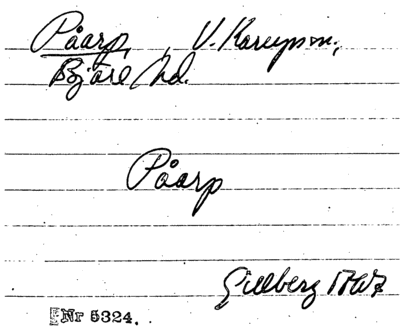 Påarp, V. Karups sn.,
Bjäre hd.
Påarp
Gillberg 1847
Nr 5324.